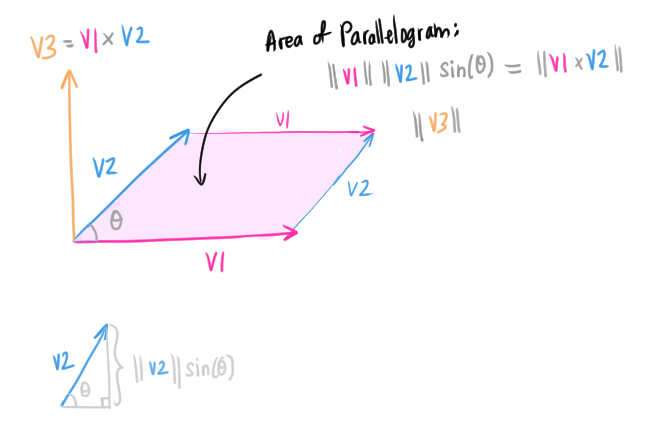 V3 = V1 × V2
Area of Parallelogram:
||V1|| ||V2|| sin(θ) = ||V1 × V2||
||V3||
V1
V2
V2
θ
V1
V2
θ
||V2|| sin(θ)